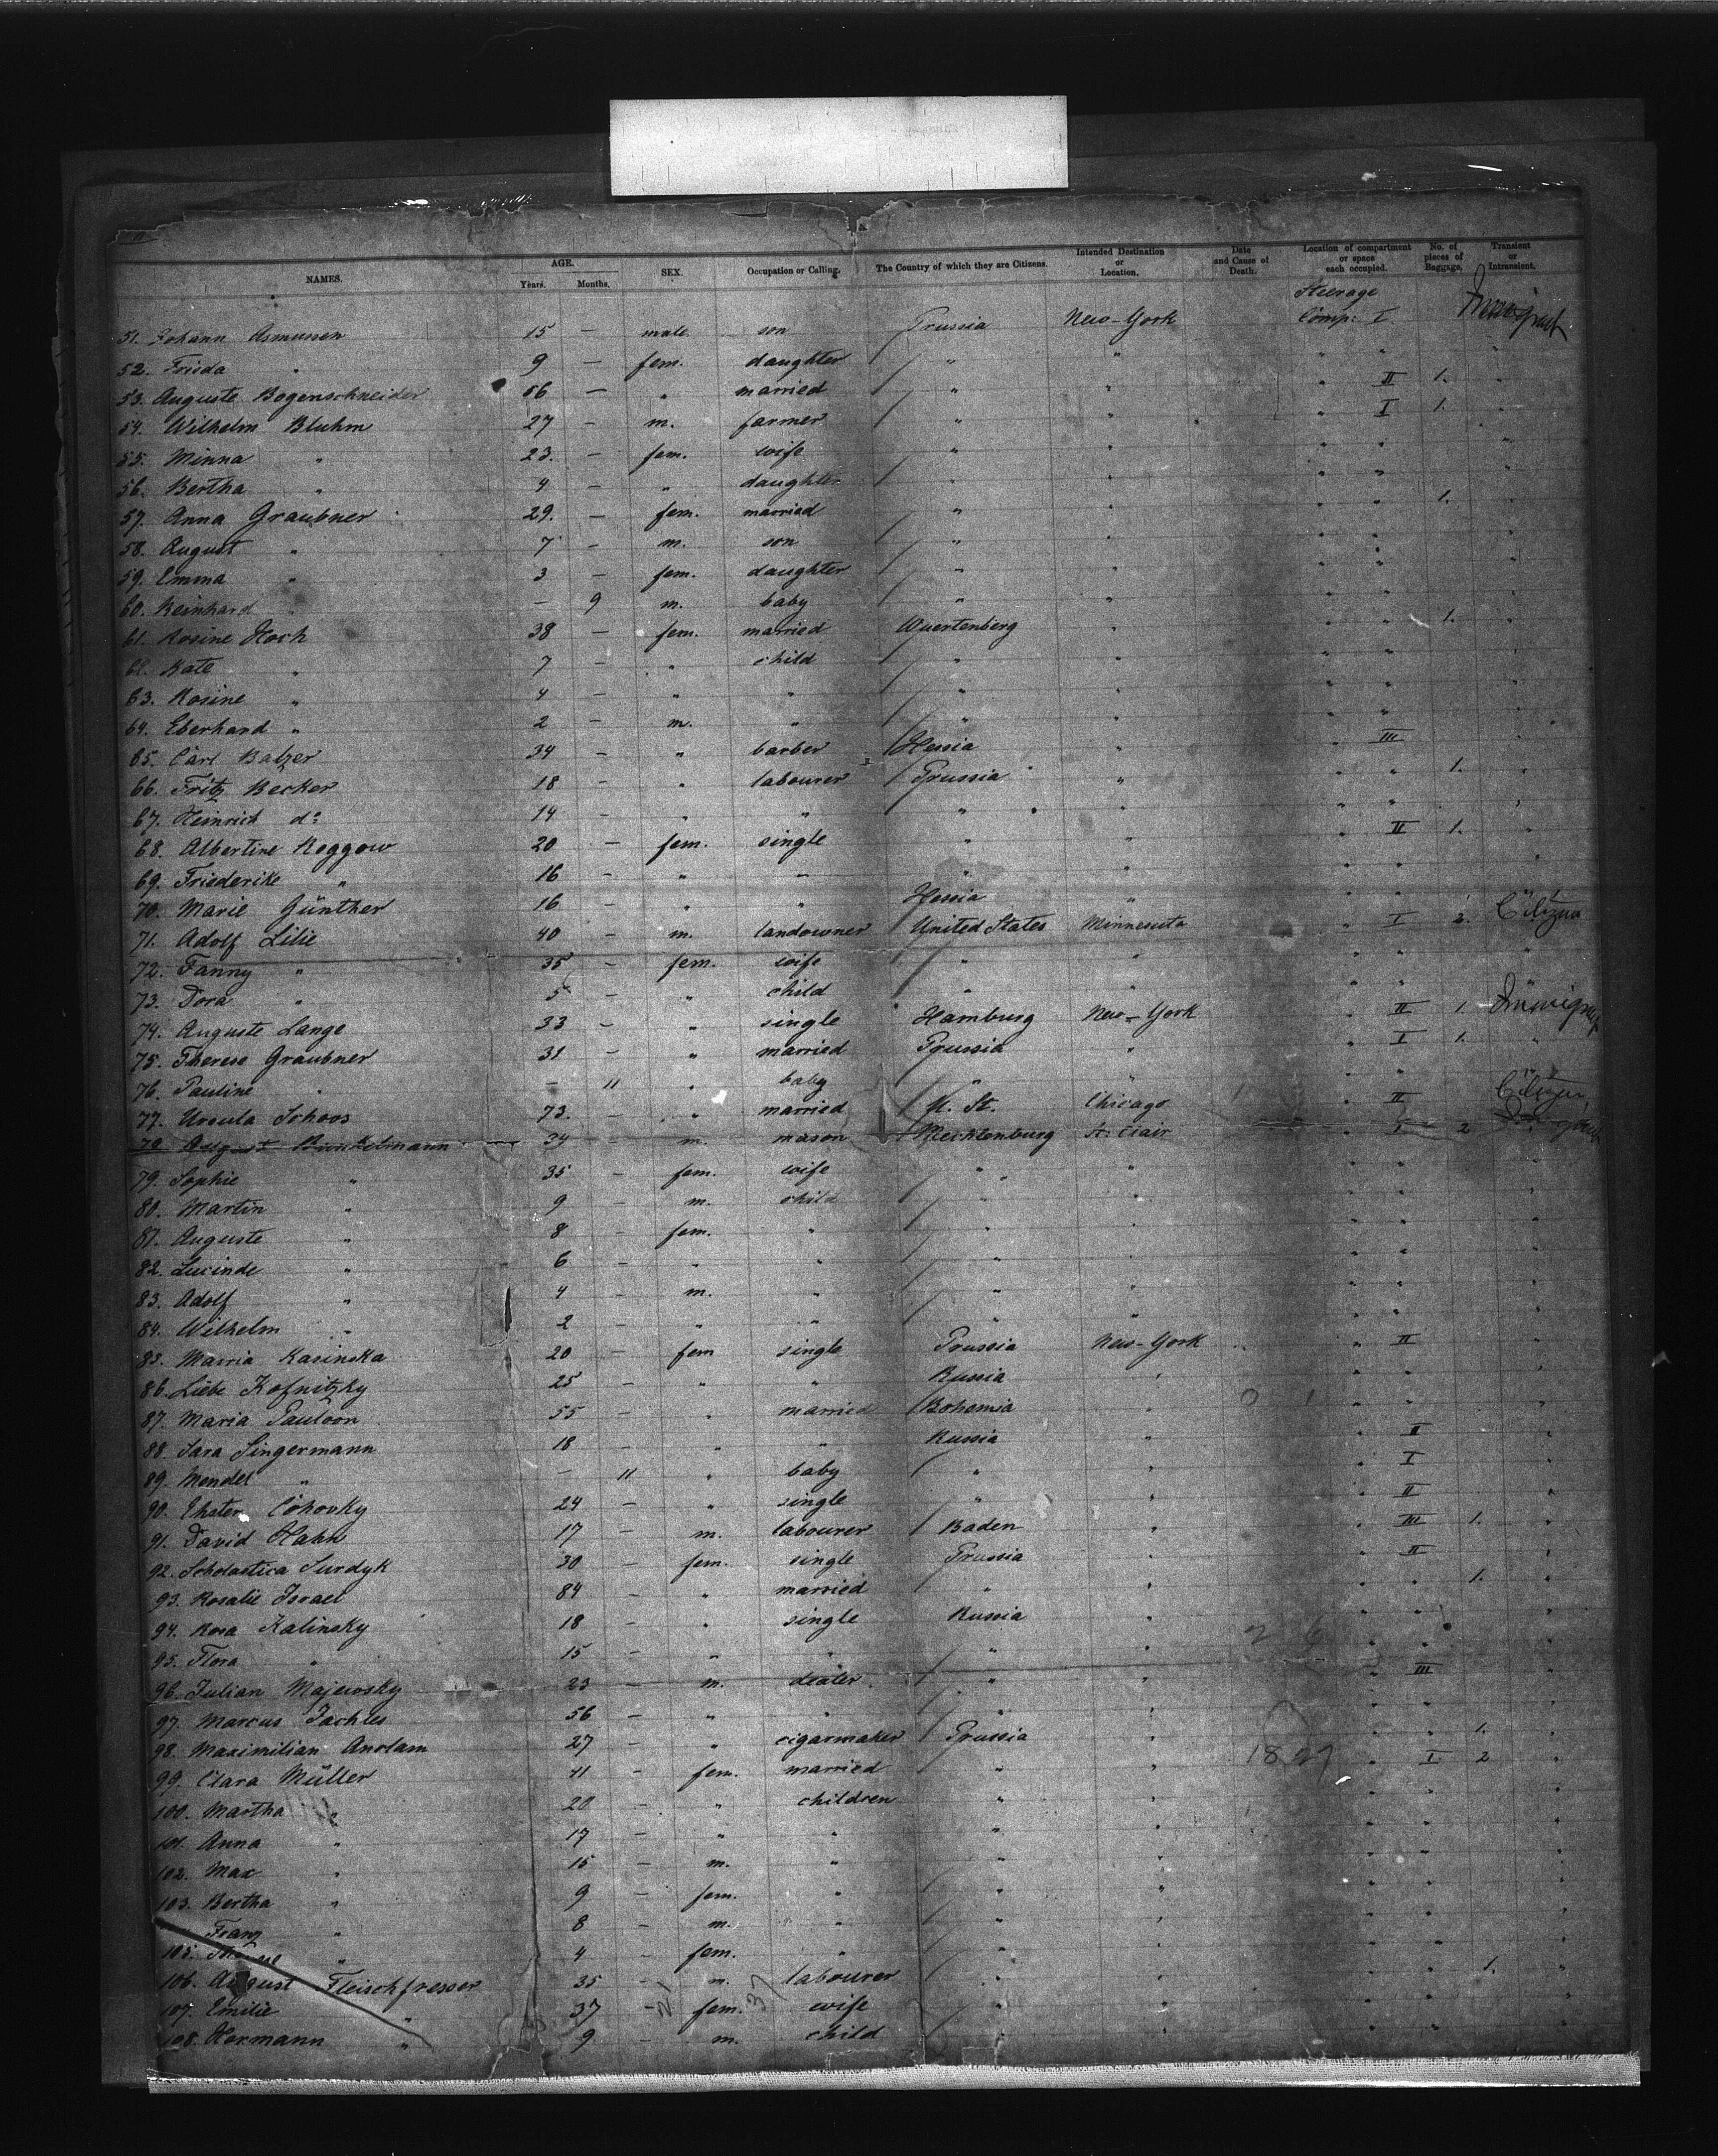 NAMES. AGE. Years. Months. SEX. Occupation or Calling. The Country of which they are Citizens. Intended Destination or Location. Date and Cause of Death. Location of compartment or space each occupied. No. of pieces of Baggage. Transient or Intransient.
51. Johann Asmussen 15 — male son Prussia New-York Steerage Comp: I
52. Frieda " 9 — fem. daughter " " " "
53. Auguste Bogenschneider 56 — " married " " " II 1. "
54. Wilhelm Bluhm 27 — m. farmer " " " I 1. "
55. Minna " 23. — fem. wife " " " " "
56. Bertha " 4 — " daughter " " " " "
57. Anna Graubner 29. — fem. married " " " " 1. "
58. August " 7 — m. son " " " " "
59. Emma " 3 — fem. daughter " " " " "
60. Reinhard " — 9 m. baby " " " " "
61. Rosine Hoch 38 — fem. married Wuertenberg " " " 1. "
62. Kate " 7 — " child " " " " "
63. Rosine " 4 — " " " " " " "
64. Eberhard " 2 — m. " " " " " "
65. Carl Balzer 34 — " barber Hessia " " III "
66. Fritz Becker 18 — " labourer Prussia " " " 1. "
67. Heinrich do 14 — " " " " " " "
68. Albertine Roggow 20 — fem. single " " " II 1. "
69. Friederike " 16 — " " " " " " "
70. Marie Günther 16 — " " Hessia " " " "
71. Adolf Lilie 40 — m. landowner United States Minnesota " I 2. Citizen
72. Fanny " 35 — fem. wife " " " " "
73. Dora " 5 — " child " " " "
74. Auguste Lange 33 — " single Hamburg New-York " II 1.
75. Therese Graubner 31 — " married Prussia " " I 1. "
76. Pauline " — 11 " baby " " " "
77. Ursula Schoos 73. — " married U. St. Chicago " II Citizen
78. August Bunkelmann 34 — m. mason Mecklenburg St. Clair " I 2
79. Sophie " 35 — fem. wife " " " " "
80. Martin " 9 — m. child " " " " "
81. Auguste " 8 — fem. " " " " " "
82. Lucinde " 6 — " " " " " " "
83. Adolf " 4 — m. " " " " " "
84. Wilhelm " 2 — " " " " " " "
85. Marria Kasinska 20 — fem single Prussia New-York " II "
86. Liebe Kofnitzky 25 — " " Russia " " " "
87. Maria Pauloon 55 — " married Bohemia " " " "
88. Sara Singermann 18 — " " Russia " " II "
89. Mendel " — 11 " baby " " " I "
90. Ehster Cohovky 24 — " single " " " II "
91. David Hahn 17 — m. labourer Baden " " III 1. "
92. Scholastica Surdyk 30 — fem. single Prussia " " II "
93. Rosalie Israel 84 — " married " " " " 1. "
94. Rosa Kalinsky 18 — " single Russia " " " "
95. Flora " 15 — " " " " " " "
96. Julian Majewsky 23 — m. dealer " " " III "
97. Marcus Jachles 56 — " " " " " " "
98. Maximilian 27 — " cigarmaker Prussia " " " 1. "
99. Clara Müller 41 — fem. married " " " I 2 "
100. Martha " 20 — " children " " " " "
101. Anna " 17 — " " " " " " "
102. Max " 15 — m. " " " " " "
103. Bertha " 9 — fem. " " " " " "
Franz " 8 — m. " " " " " "
105. " 4 — fem. " " " " " "
106. August Fleischfresser 35 — m. labourer " " " " 1. "
107. Emilie " 37 — fem. wife " " " " "
108. Hermann " 9 — m. child " " " " "